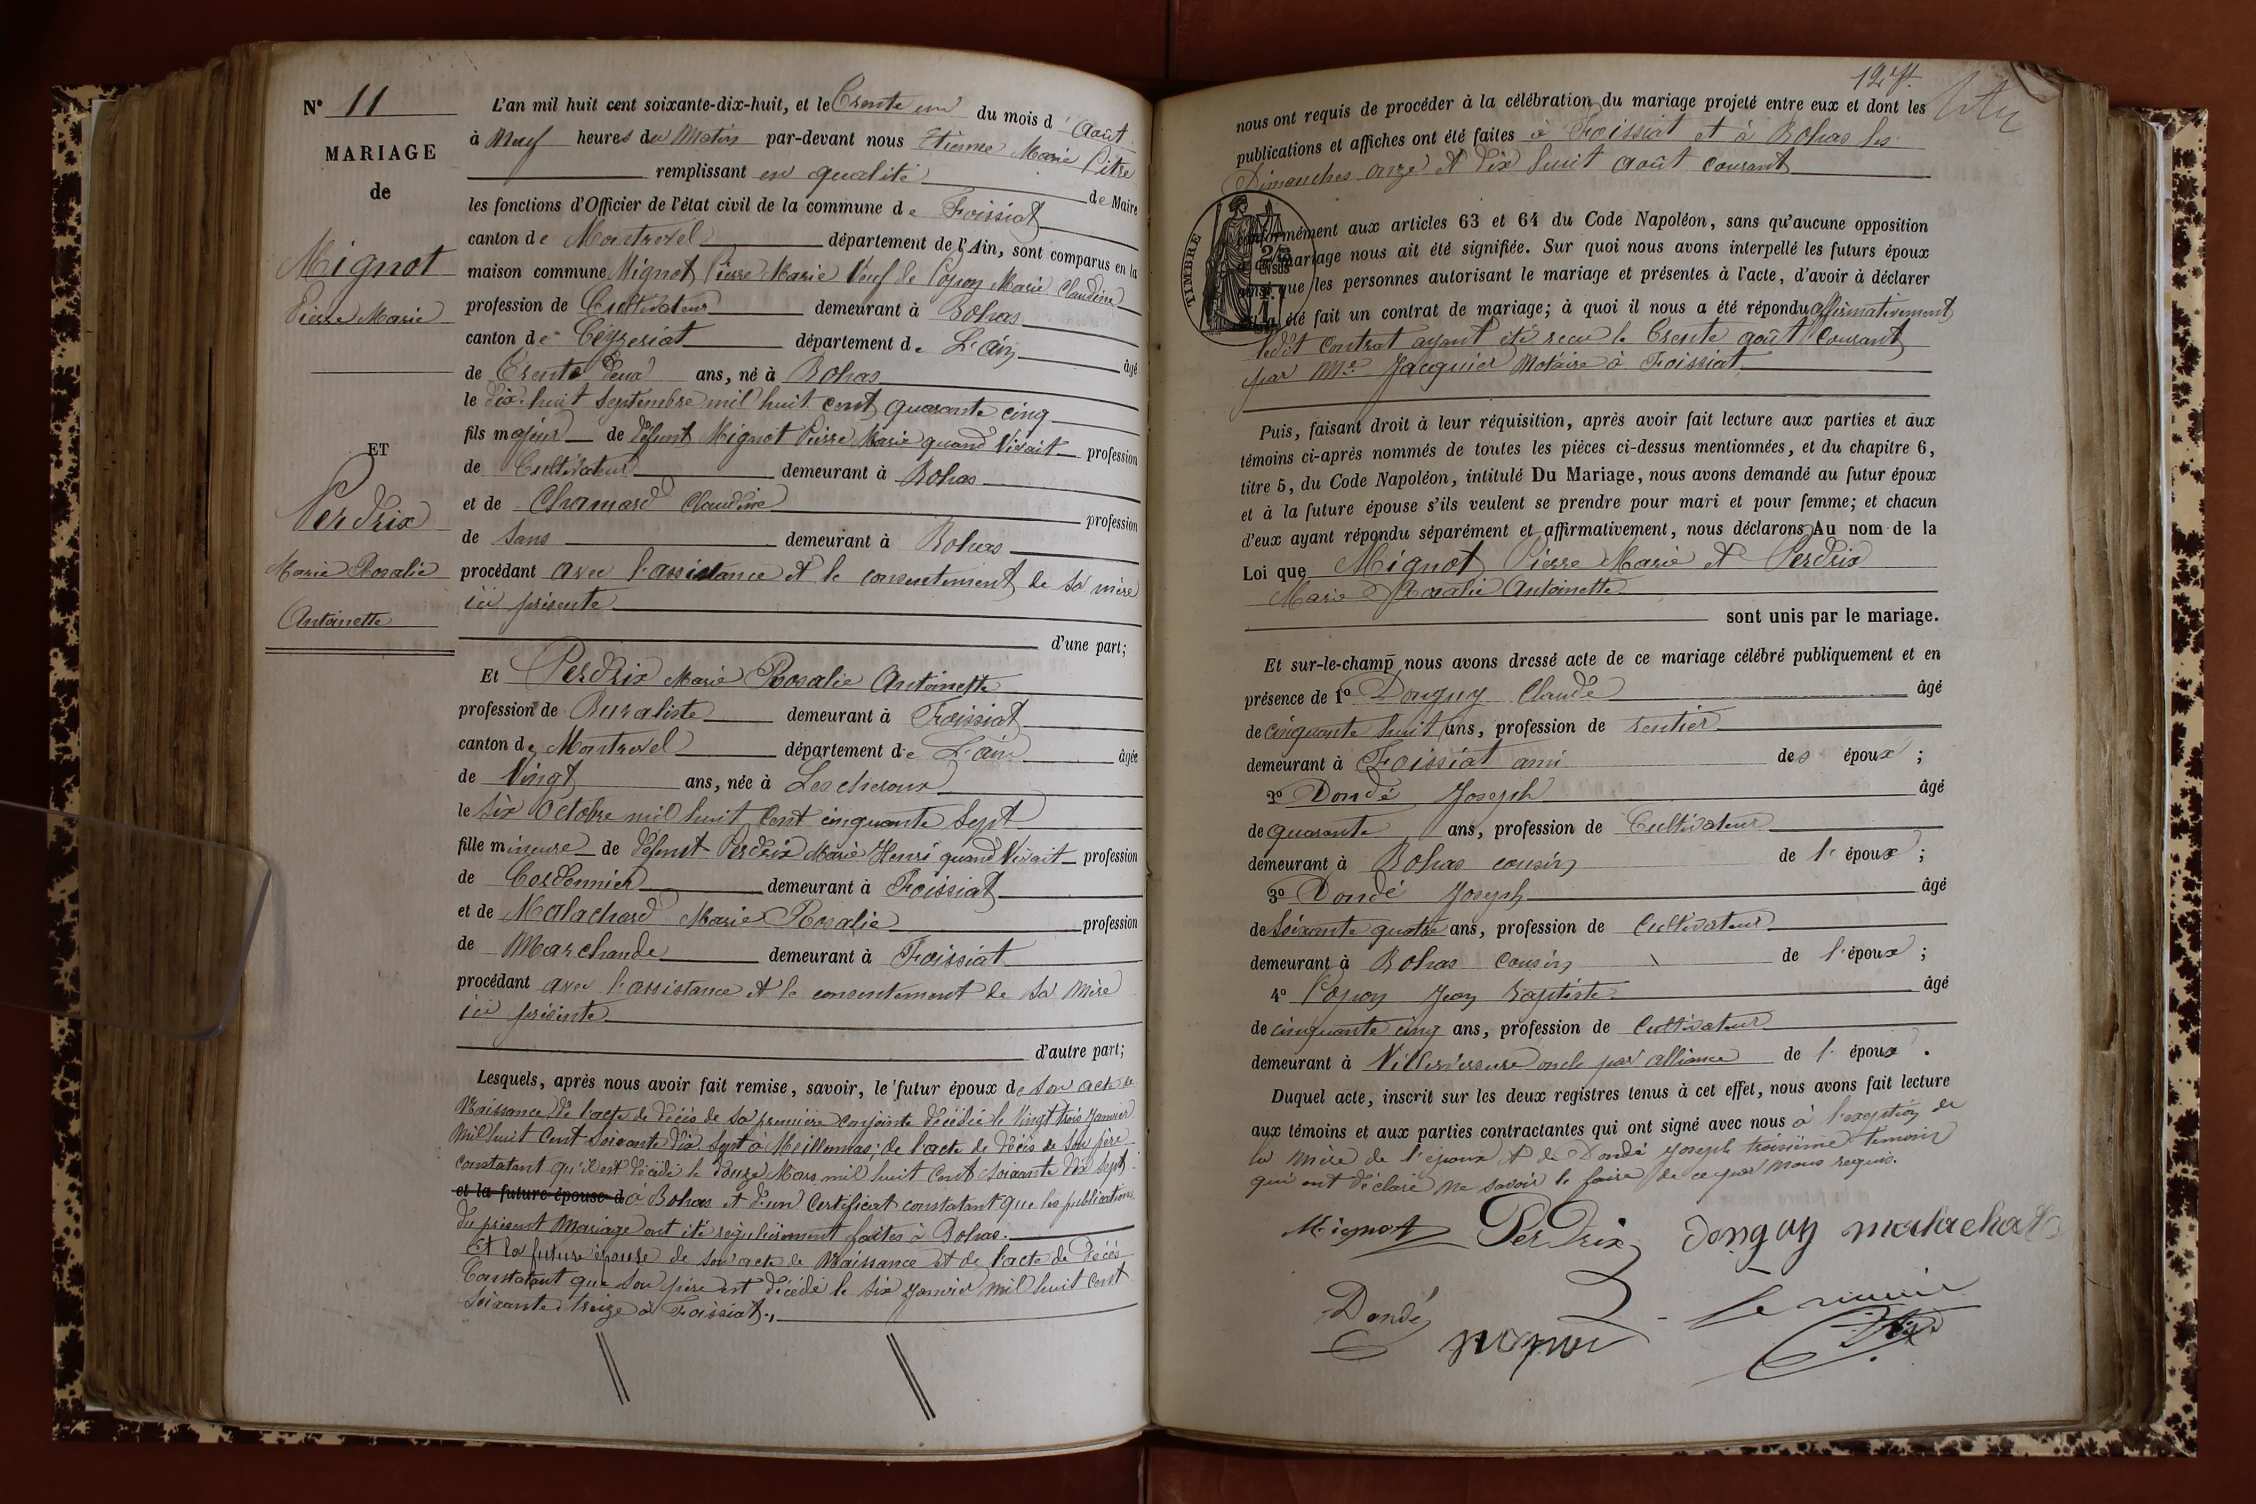 N° 11
MARIAGE
de
Mignot
Pierre Marie
ET
Perdrix
Marie Rosalie
Antoinette
L'an mil huit cent soixante-dix-huit, et le Trente un du mois d' Août
à Neuf heures du Matin par-devant nous Etienne Marie Pitre
remplissant en qualité de Maire
les fonctions d'Officier de l'état civil de la commune de Foissiat
canton de Montrevel département de l'Ain, sont comparus en la
maison commune Mignot Pierre Marie Veuf de Popon Marie Claudine
profession de Cultivateur demeurant à Bohas
canton de Ceyzeriat département de L'ain âgé
de Trente deux ans, né à Bohas
le dix-huit Septembre mil huit cent quarante cinq
fils majeur de défunt Mignot Pierre Marie quand Vivait profession
de Cultivateur demeurant à Bohas
et de Chamard Claudine profession
de Sans demeurant à Bohas
procédant avec l'assistance et le consentement de sa mère
ici présente
d'une part;
Et Perdrix Marie Rosalie Antoinette
profession de Buraliste demeurant à Foissiat
canton de Montrevel département de L'ain âgée
de Vingt ans, née à Lescheroux
le Six Octobre mil huit Cent cinquante Sept
fille mineure de défunt Perdrix Marie Henri quand Vivait profession
de Cordonnier demeurant à Foissiat
et de Malachard Marie Rosalie profession
de Marchande demeurant à Foissiat
procédant avec l'assistance et le consentement de Sa Mère
ici présente
d'autre part;
Lesquels, après nous avoir fait remise, savoir, le futur époux de son acte de
Naissance, de l'acte de décès de Sa première conjointe décédée le Vingt trois Janvier
Mil huit Cent Soixante dix Sept à Meillonnas; de l'acte de décès de Son père
constatant qu'il est décédé le douze Mars mil huit Cent Soixante dix Sept
et la future épouse d à Bohas et d'un Certificat constatant que les publications
du présent Mariage ont été régulièrement faites à Bohas.
Et la future épouse de Son acte de Naissance et de l'acte de Décès
Constatant que Son père est décédé le Six Janvier mil huit Cent
Soixante treize à Foissiat.
12
nous ont requis de procéder à la célébration du mariage projeté entre eux et dont les
publications et affiches ont été faites à Foissiat et à Bohas les
Dimanches onze et dix huit Août courant
TIMBRE
conformément aux articles 63 et 64 du Code Napoléon, sans qu'aucune opposition
à ce mariage nous ait été signifiée. Sur quoi nous avons interpellé les futurs époux
ainsi que les personnes autorisant le mariage et présentes à l'acte, d'avoir à déclarer
s'il a été fait un contrat de mariage; à quoi il nous a été répondu affirmativement
ledit Contrat ayant été recu le Trente août Courant
par Me Jacquier Notaire à Foissiat
Puis, faisant droit à leur réquisition, après avoir fait lecture aux parties et aux
témoins ci-après nommés de toutes les pièces ci-dessus mentionnées, et du chapitre 6,
titre 5, du Code Napoléon, intitulé Du Mariage, nous avons demandé au futur époux
et à la future épouse s'ils veulent se prendre pour mari et pour femme; et chacun
d'eux ayant répondu séparément et affirmativement, nous déclarons Au nom de la
Loi que Mignot Pierre Marie et Perdrix
Marie Rosalie Antoinette
sont unis par le mariage.
Et sur-le-champ nous avons dressé acte de ce mariage célébré publiquement et en
présence de 1° Donguy Claude âgé
de cinquante huit ans, profession de rentier
demeurant à Foissiat ami des époux ;
2° Dondé Joseph âgé
de quarante ans, profession de Cultivateur
demeurant à Bohas cousin de l' époux ;
3° Dondé Joseph âgé
de Soixante quatre ans, profession de Cultivateur
demeurant à Bohas Cousin de l'époux ;
4° Popon Jean Baptiste âgé
de cinquante cinq ans, profession de Cultivateur
demeurant à Villereversure oncle par alliance de l' époux .
Duquel acte, inscrit sur les deux registres tenus à cet effet, nous avons fait lecture
aux témoins et aux parties contractantes qui ont signé avec nous à l'exception de
la Mère de l'époux et de Dondé Joseph troisième temoin
qui ont déclaré ne savoir le faire de ce par Nous requis.
Mignot Perdrix Donguy malachard
Dondé popon le maire
Pitre